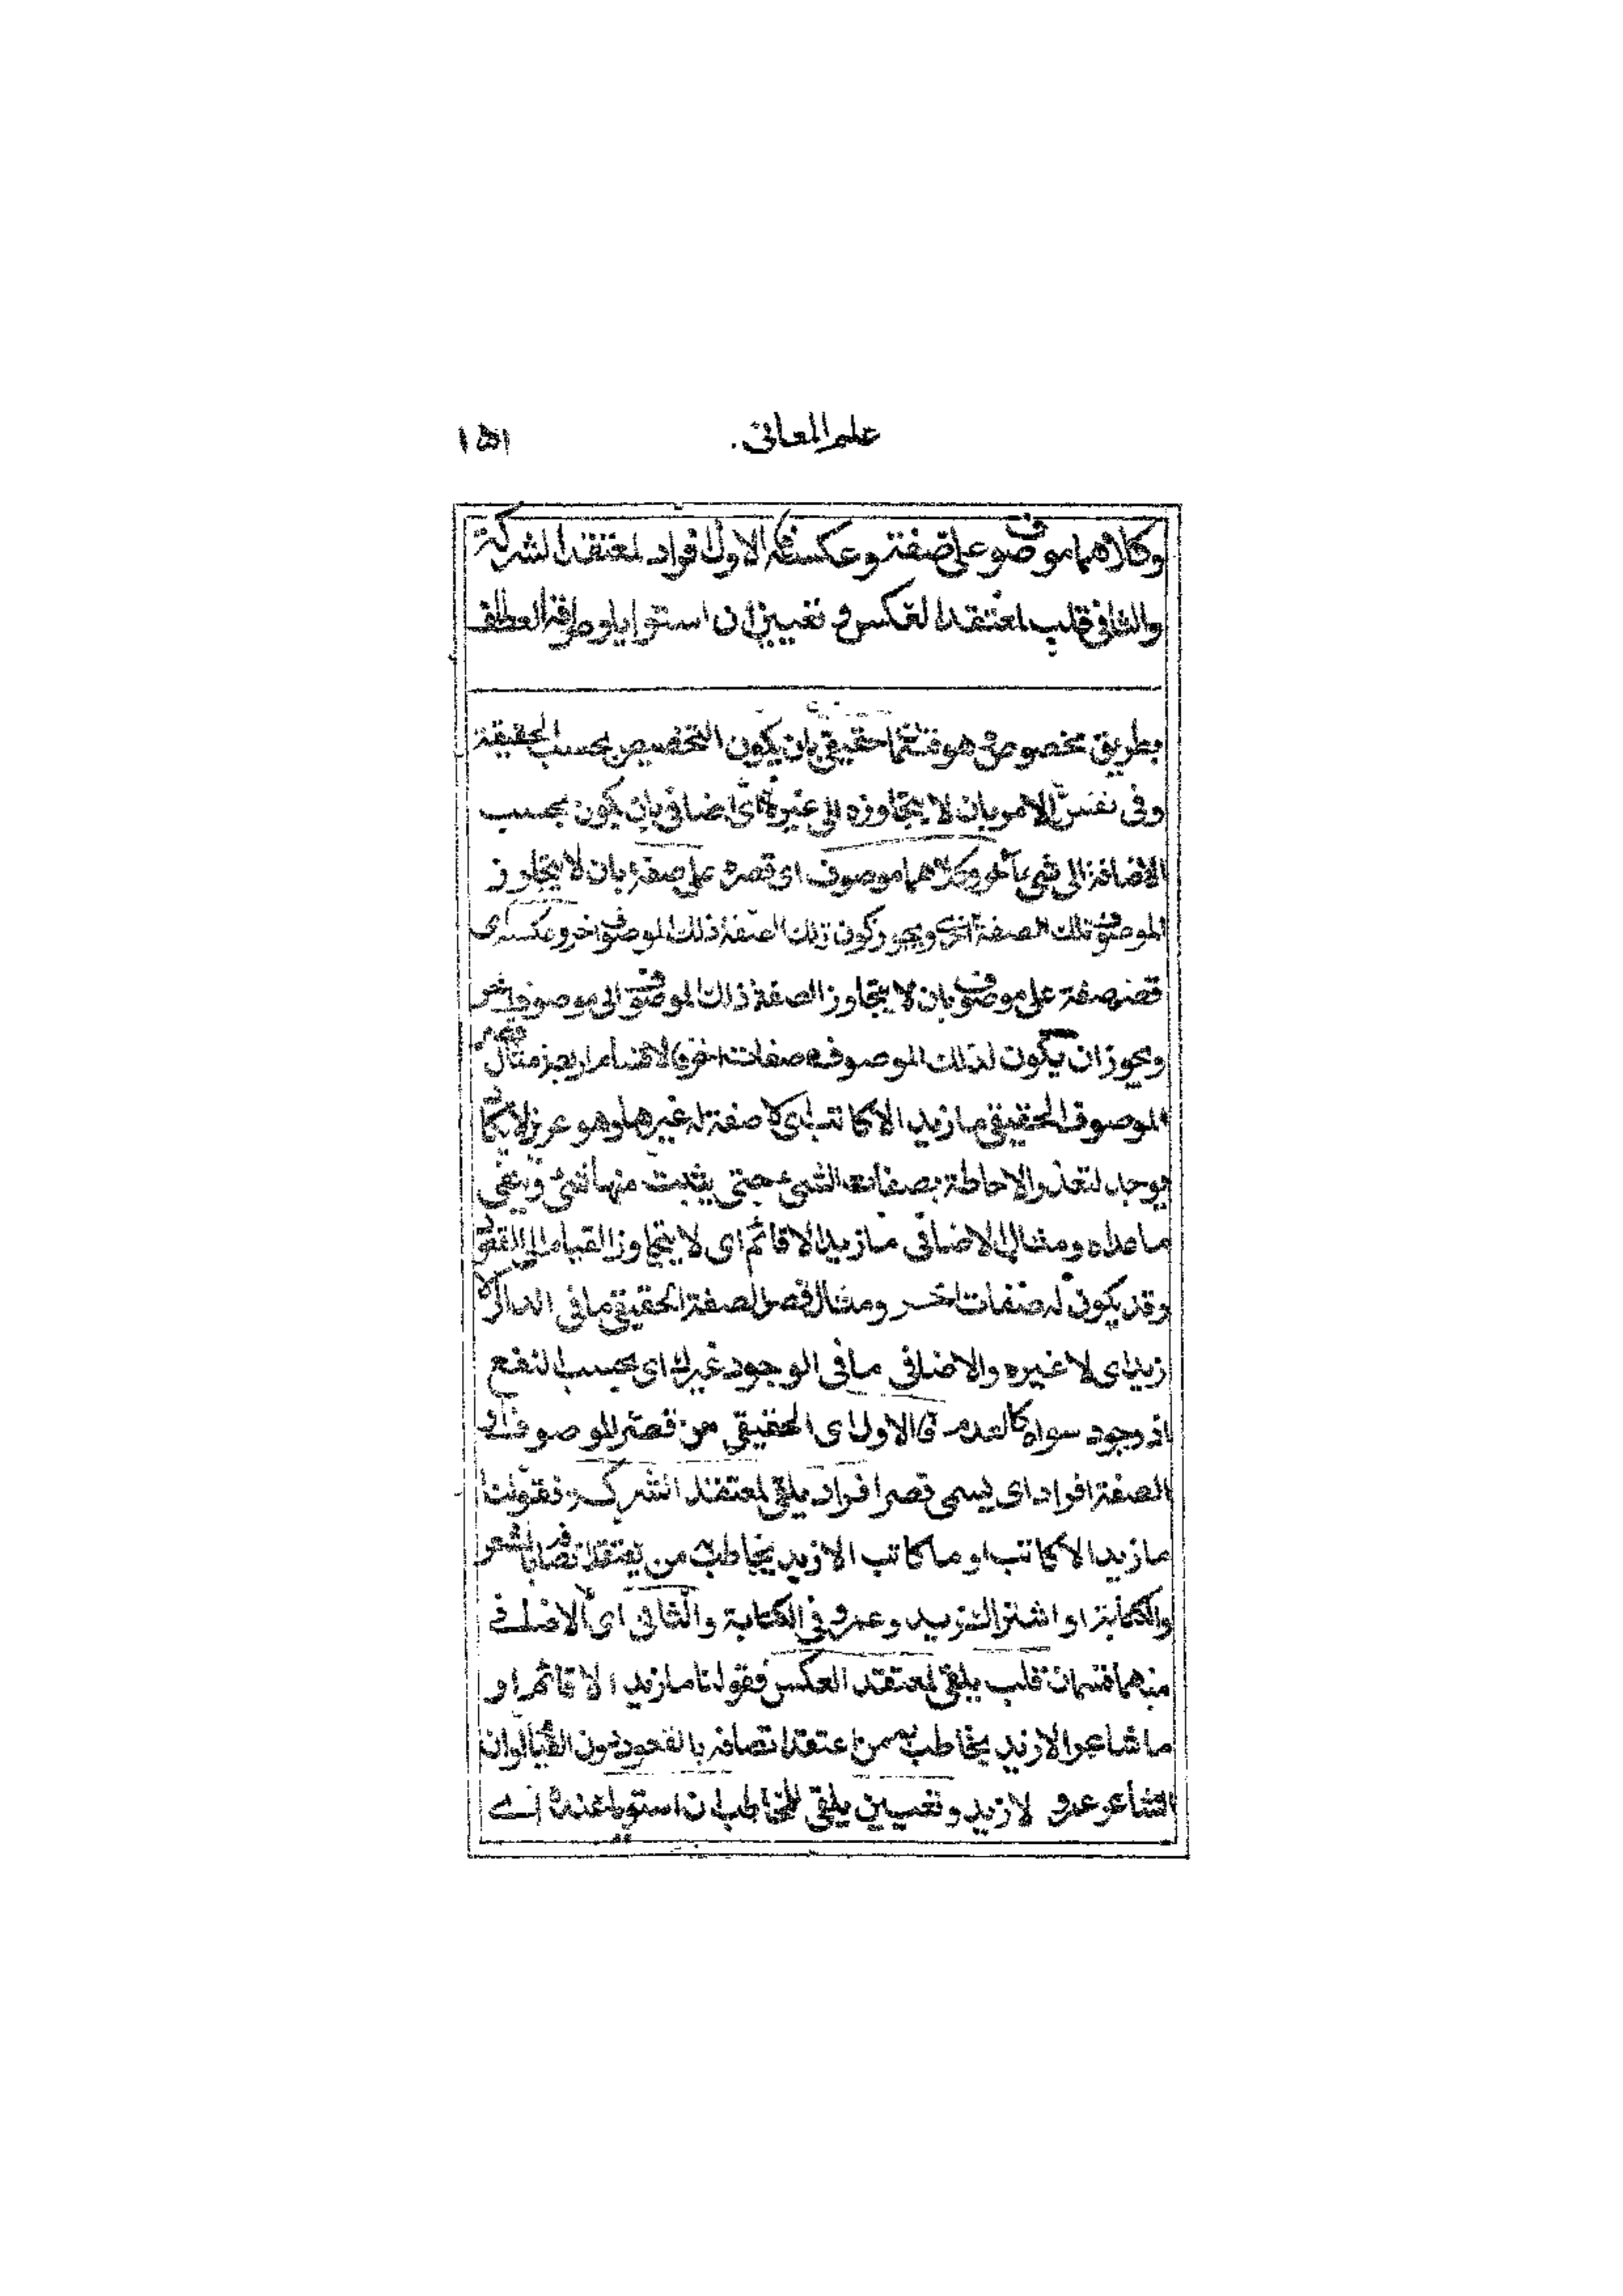 علم المعانی
۱۵۱
وكلاهما موصوف على صفة وعكسه فالاول افراد لمعتقد الشركة
والثانی قلب لمعتقد العكس و تعيين ان استويا وطرقه العطف
بطريق مخصوص هو قسمان حقيقی بان يكون التخصيص بحسب الحقيقة
وفی نفس الامر بان لا يتجاوزه الی غيره ای اضافی بان يكون بحسب
الاضافة الی شیء آخر وكلاهما موصوف ای قصره علی صفة بان لا يتجاوز
الموصوف تلك الصفة ويجوز كون تلك الصفة ذلك الموصوف آخر وعكسه ای
قصر صفة علی موصوف بان لا يتجاوز الصفة ذلك الموصوف الی موصوف آخر
ويجوز ان يكون لذلك الموصوف صفات اخر فالاقسام اربعة مثال
الموصوف الحقيقی ما زيد الا كاتب ای لا صفة له غيرها وهو عزيز لا يكاد
يوجد لتعذر الاحاطة بصفات الشیء حتی يثبت منها شیء وينفی
ما عداه ومثال الاضافی ما زيد الا قائم ای لا يتجاوز القيام الی القعود
وقد يكون له صفات اخر ومثال قصر الصفة الحقيقی ما فی الدار الا
زيد ای لا غيره والاضافی ما فی الوجود غيرك ای بحسب النفع
اذ وجود سواه كالعدم فالاول ای الحقيقی من قصر الموصوف او
الصفة افراد ای يسمی قصر افراد يلقی لمعتقد الشركة فقولنا
ما زيد الا كاتب او ما كاتب الا زيد يخاطب به من يعتقد اتصافه بالشعر
والكتابة او اشتراك زيد وعمرو فی الكتابة والثانی ای الاضافی
منهما قسمان قلب يلقی لمعتقد العكس فقولنا ما زيد الا قائم او
ما شاعر الا زيد يخاطب به من اعتقد اتصافه بالقعود دون القيام او ان
الشاعر عمرو لا زيد وتعيين يلقی للمخاطب ان استويا عنده ای